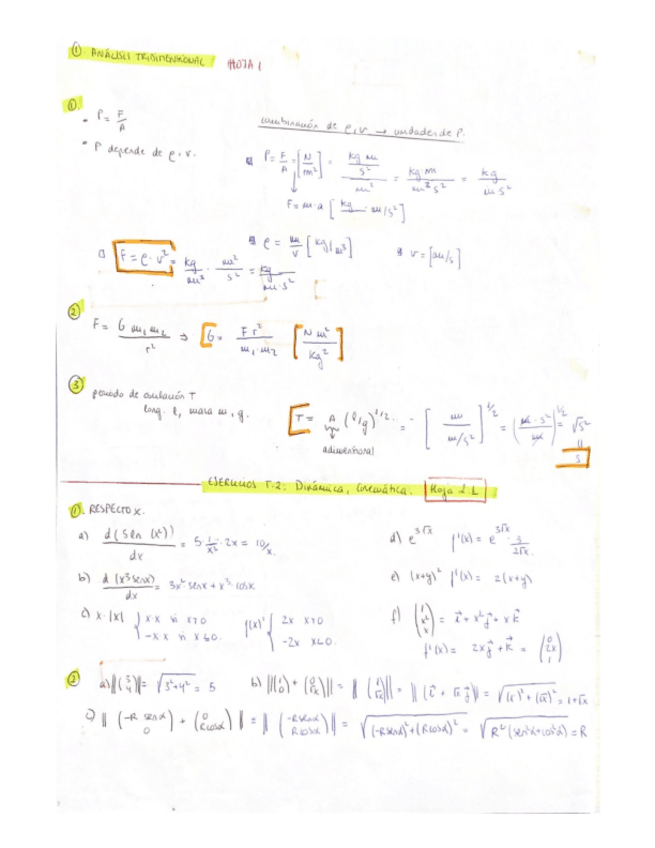 ① ANÁLISIS TRIDIMENSIONAL HOJA 1
①.
• P = F/A
combinación de ρ, v → unidades de P.
• P depende de ρ, v.
P = F/A = [N/m²] = (kg m/s²)/m² = kg·m/m²s² = kg/m s²
F = m·a [kg · m/s²]
ρ = m/v [kg/m³]
v = [m/s]
F = ρ·v² = kg/m³ · m²/s² = kg/m·s²
②
F = G m₁m₂/r² ⇒ G = F r²/m₁·m₂ [N m²/kg²]
③
periodo de oscilación T
long. l, masa m, g.
T = A (l/g)^1/2 = [m/(m/s²)]^1/2 = (m·s²/m)^1/2 = √s²
adimensional
s
EJERCICIOS T.2: Dinámica, Cinemática. Hoja 2.1
①. RESPECTO X.
a) d(5 ln (x²))/dx = 5·1/x²·2x = 10/x.
b) d(x³senx)/dx = 3x² senx + x³·cosx
c) x·|x| { x·x si x>0
-x·x si x<0.
f(x)' { 2x x>0
-2x x<0.
d) e^3√x f'(x) = e^3√x · 3/2√x.
e) (x+y)² f'(x) = 2(x+y)
f) (1 x² x) = i⃗ + x²j⃗ + xk⃗
f'(x) = 2xj⃗ + k⃗ = (0 2x 1)
②
a) ||(3 4)|| = √3²+4² = 5
b) ||(1 0) + (0 √x)|| = ||(1 √x)|| = ||(i⃗ + √x j⃗)|| = √(1)²+(√x)² = 1+√x
c) ||(-R senα 0) + (0 R cosα)|| = ||(-R senα R cosα)|| = √(-R senα)²+(R cosα)² = √R²(sen²α+cos²α) = R